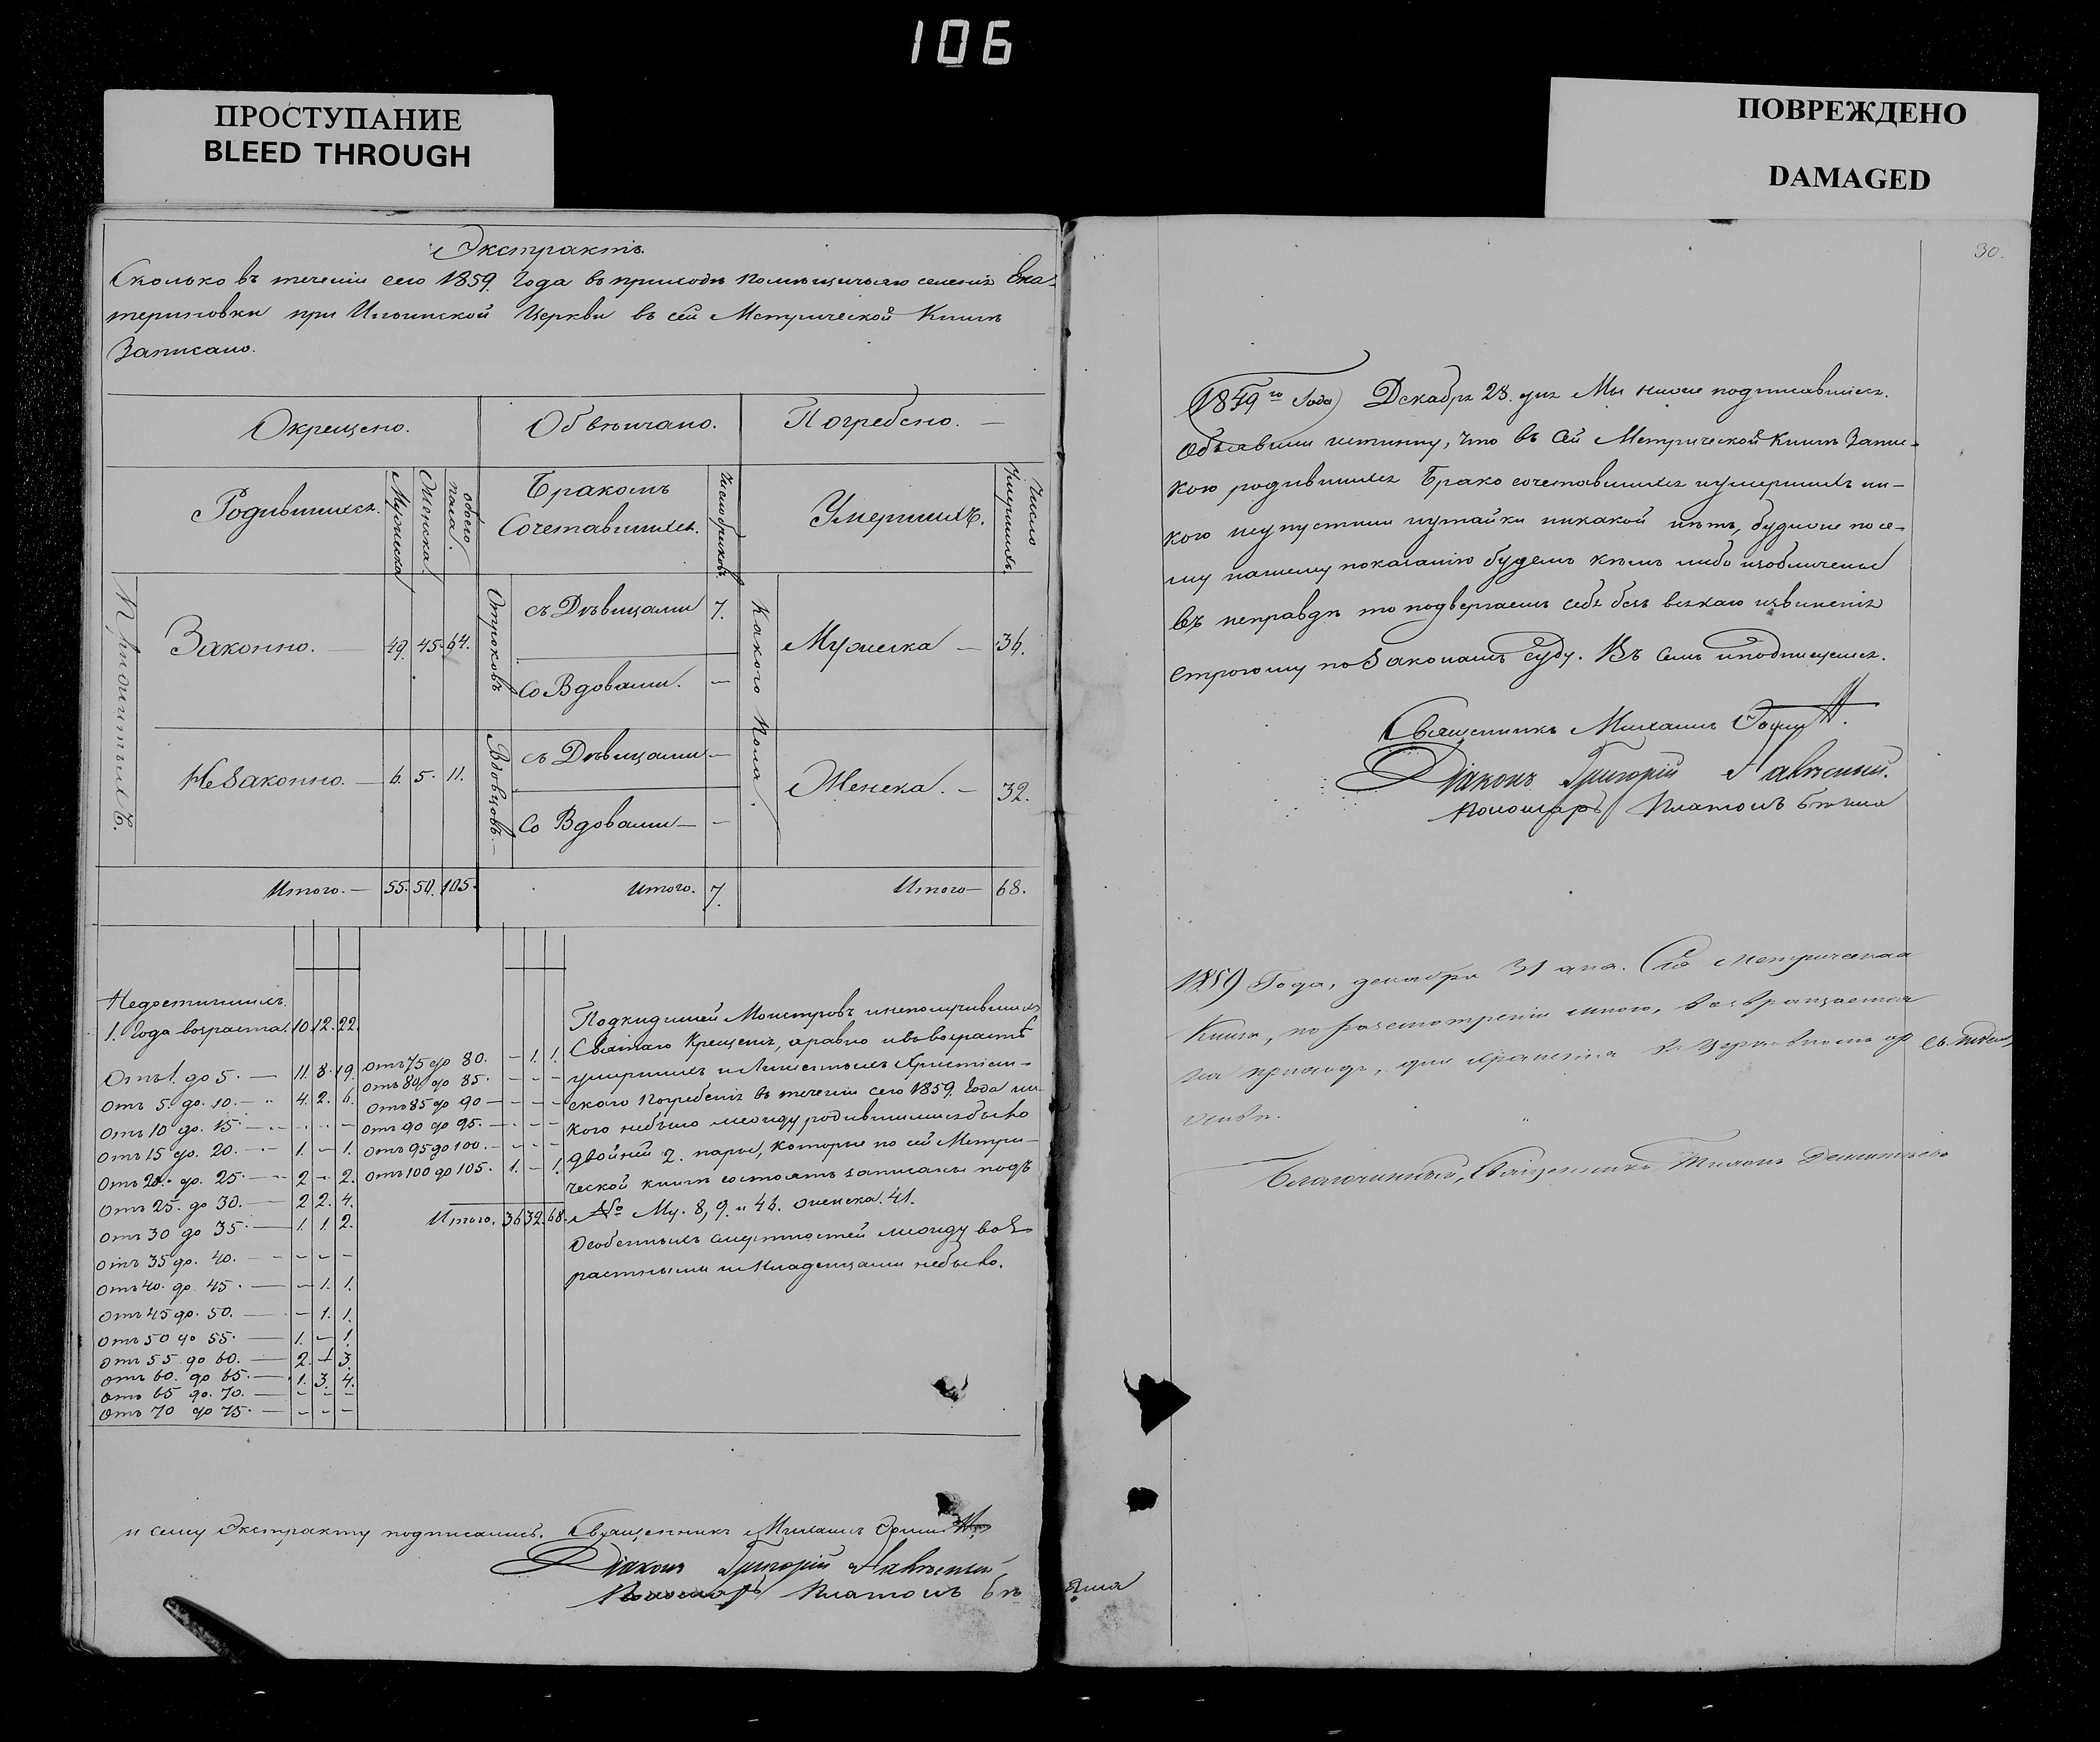 106
ПРОСТУПАНИЕ
BLEED THROUGH
ПОВРЕЖДЕНО
DAMAGED
Экстрактъ.
Сколько въ теченіи сего 1859. Года въ приходѣ помѣщичьяго селенія Ека-
териновки при Ильинской Церкви въ сей Метрической Книгѣ
Записано.
Окрещено.
Обвѣнчано.
Погребено. —
Родившихся.
Мужеска
Женска.
обоего пола.
Бракомъ
Сочетавшихся.
Число браковъ.
Умершихъ.
Число Умершихъ.
Законно. — 49. 45. 94.
Отроковъ
съ Дѣвицами 7.
Со Вдовами. —
Какого Пола.
Мужеска — 36.
НеЗаконно. — 6. 5. 11.
Вдовцовъ. —
съ Дѣвицами —
Со Вдовами — —
Женска. — 32.
Итого. — 55. 50. 105.
Итого. 7.
Итого — 68.
Недостигшихъ
1. Года возраста. 10. 12. 22.
Отъ 1. до 5. — 11. 8. 19.
Отъ 5. до. 10. — 4. 2. 6.
Отъ 10 до. 15. — — — —
Отъ 15 до. 20. — 1. — 1.
Отъ 20. до. 25. — 2 — 2.
Отъ 25. до 30. — 2 2. 4.
Отъ 30 до 35. — 1. 1. 2.
Отъ 35 до. 40. — — — —
Отъ 40. до. 45. — — 1. 1.
Отъ 45 до. 50. — — 1. 1.
Отъ 50 до 55. — 1. — 1.
Отъ 55 до 60. — 2. 1 3.
Отъ 60. до 65. — 1. 3. 4.
Отъ 65 до. 70. — — — —
Отъ 70 до 75. — — — —
Отъ 75 до 80. — 1. 1.
Отъ 80 до 85. — — —
Отъ 85 до 90 — — — —
Отъ 90 до 95. — — — —
Отъ 95 до 100. — — — —
Отъ 100 до 105. 1. — 1.
Итого. 36 32. 68.
Подкидышей Монстровъ инеполучившихъ
Святаго Крещенія, аравно ивъ возрастѣ
умершихъ иЛишенныхъ Христіан-
скаго Погребенія въ теченіи сего 1859. Года ни-
кого небыло между родившимися было
двойней 2. пары, которые по сей Метри-
ческой книгѣ состоятъ записаны подъ
№ Му. 8, 9. и 46. женска. 41.
Особенныхъ смертностей между воз-
растными иМладенцами небыло.
и сему Экстракту подписались. Священникъ Михаилъ
Діаконъ Григорій
Пономарь Платонъ
30.
1859го Года Декабря 28. дня Мы ниже подписавшіеся.
Объявили истинну, что въ Сей Метрической Книгѣ Запис-
кою родившихся Брако сочетовшихся иумершихъ ни-
кого неупустили иутайки никакой нѣтъ, будиже посе-
му нашему показанію будемъ кѣмъ либо изобличены
Въ неправдѣ то подвергаемъ себя безъ всякаго извиненія
строгому поЗаконамъ Суду. Въ Семъ иподпишемся.
Священникъ Михаилъ
Діаконъ Григорій
Пономарь Платонъ
1859 Года, декабря 31 дня. Сія Метрическая
Книга, по разсмотрѣніи мною, возвращается
на приходъ, для храненія въ Церковномъ ар
Благочинный, Священникъ